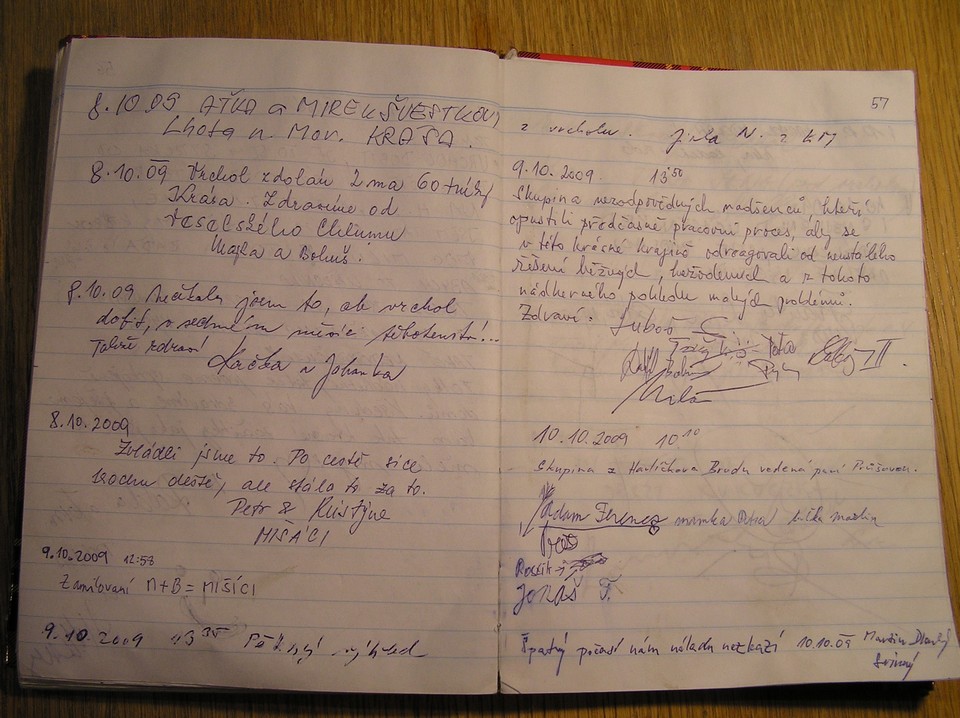 8.10 09 AŤKA a MIREK ŠVESTKOVI
Lhota n. Mor. KRÁSA.
8.10.09 Vrchol zdolán 2ma 60tníky
Krása. Zdravíme od
veselského Chlumu
Majka a Bohuš.
8.10.09 Nečekala jsem to, ale vrchol
dobit, v sedmém měsíci těhotenství...
Tohže zdraví
Kačka a Johanka
8.10.2009
Zvládli jsme to. Po cestě sice
trochu deště, ale stálo to za to.
Petr & Kristýna
MIŠÁCI
9.10.2009 12:58
Zamilovaní M+B = MIŠÍCI
9.10.2009 13 35 Pěkný výhled
57
z vrcholu. Jirka N. z KM
9.10.2009. 13 50
Skupina nezodpovědných nadšenců, kteří
opustili předčasně pracovní proces, aby se
v této krásné krajině odreagovali od neustálého
řešení běžných, každodenních a z tohoto
nádherného pohledu malých problémů.
Zdraví. Luboš
Milan
10.10.2009 10 10
Skupina z Havlíčkova Brodu vedená paní
Adam Ferenc mamka Petra
JONÁŠ F.
Špatný počasí nám náladu nezkazí 10.10.09 Martin